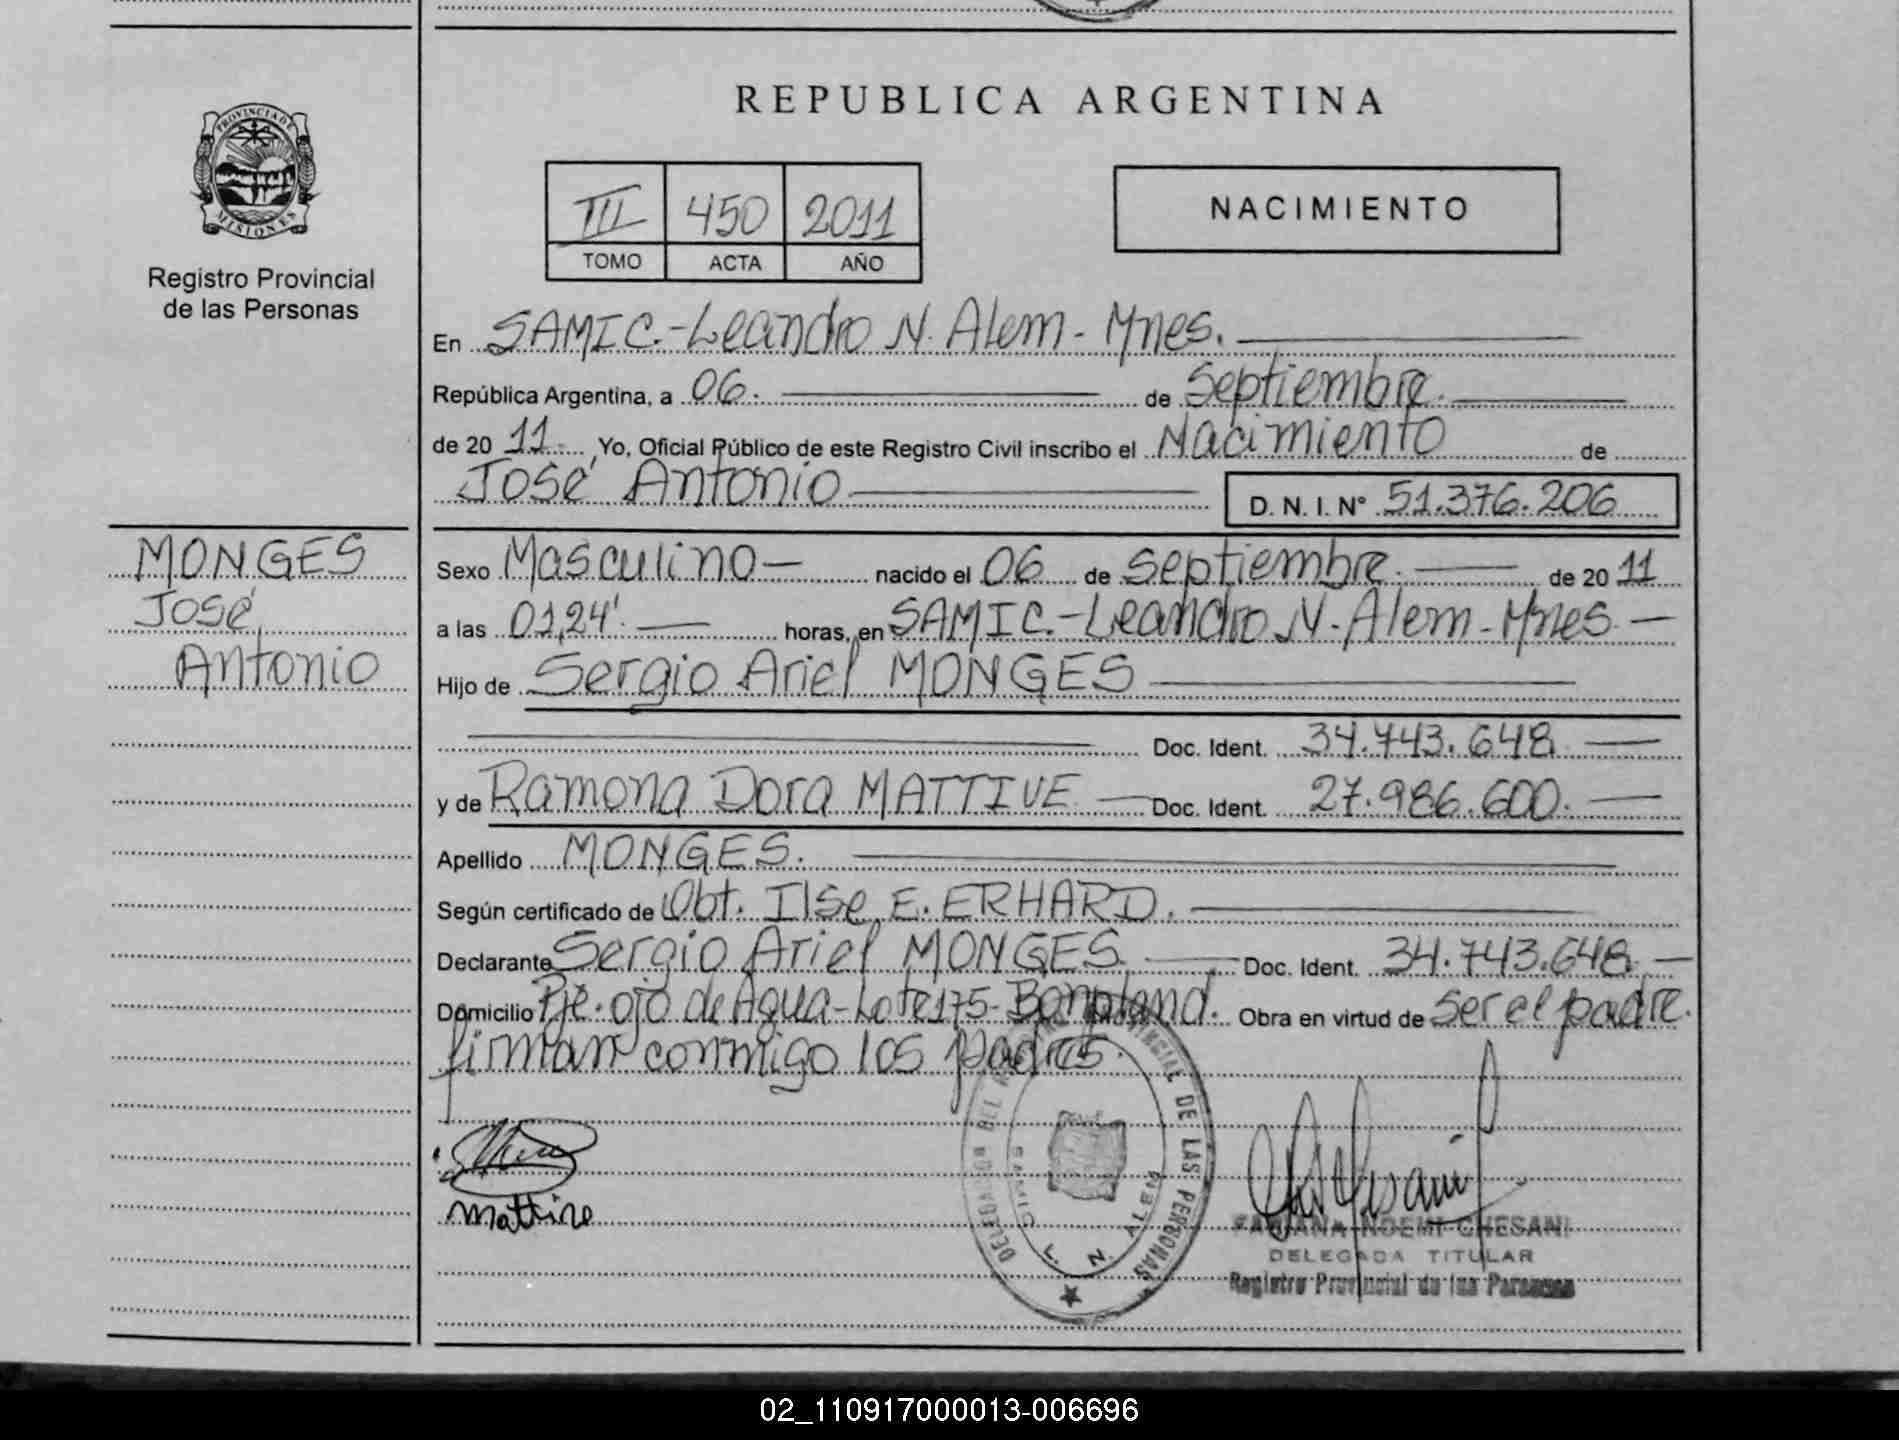 PROVINCIA DE
MISIONES
Registro Provincial
de las Personas
MONGES
José
Antonio
REPUBLICA ARGENTINA
III 450 2011
TOMO ACTA AÑO
NACIMIENTO
En SAMIC.-Leandro N. Alem - Mnes.
República Argentina, a 06. de Septiembre.
de 20 11. Yo, Oficial Público de este Registro Civil inscribo el Nacimiento de
José Antonio D. N. I. N° 51.376.206
Sexo Masculino nacido el 06 de septiembre. de 20 11
a las 01,24' horas, en SAMIC.-Leandro N. Alem - Mnes
Hijo de Sergio Ariel MONGES
Doc. Ident. 34.743.648
y de Ramona Dora MATTIVE Doc. Ident. 27.986.600.
Apellido MONGES.
Según certificado de Obt. Ilse E. ERHARD.
Declarante Sergio Ariel MONGES Doc. Ident. 34.743.648
Domicilio Pje. ojo de Agua - Lote 175 - Bonpland. Obra en virtud de Ser el padre.
firman conmigo los padres.
DEL PROVINCIAL DE LAS PERSONAS
SAMIC L. N. ALEM
FABIANA NOEMI CHESANI
DELEGADA TITULAR
Registro Provincial de las Personas
02_110917000013-006696